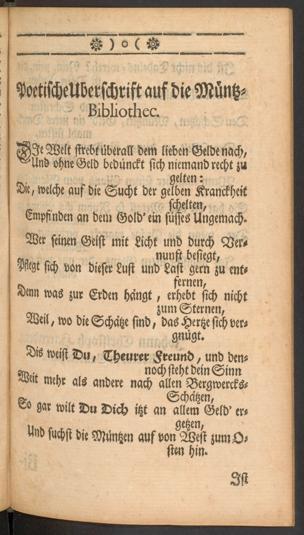 )o(
Poetische Uberschrift auf die Müntz-
Bibliothec.
DIe Welt strebt überall dem lieben Gelde nach,
Und ohne Geld bedünckt sich niemand recht zu
gelten:
Die, welche auf die Sucht der gelben Kranckheit
schelten,
Empfinden an dem Gold' ein süsses Ungemach.
Wer seinen Geist mit Licht und durch Ver-
nunft besiegt,
Pflegt sich von dieser Lust und Last gern zu ent-
fernen,
Denn was zur Erden hängt, erhebt sich nicht
zum Sternen,
Weil, wo die Schätze sind, das Hertze sich ver-
gnügt.
Dis weist Du, Theurer Freund, und den-
noch steht dein Sinn
Weit mehr als andere nach allen Bergwercks-
Schätzen,
So gar wilt Du Dich itzt an allem Geld' er-
getzen,
Und suchst die Müntzen auf von West zum O-
sten hin.
Ist